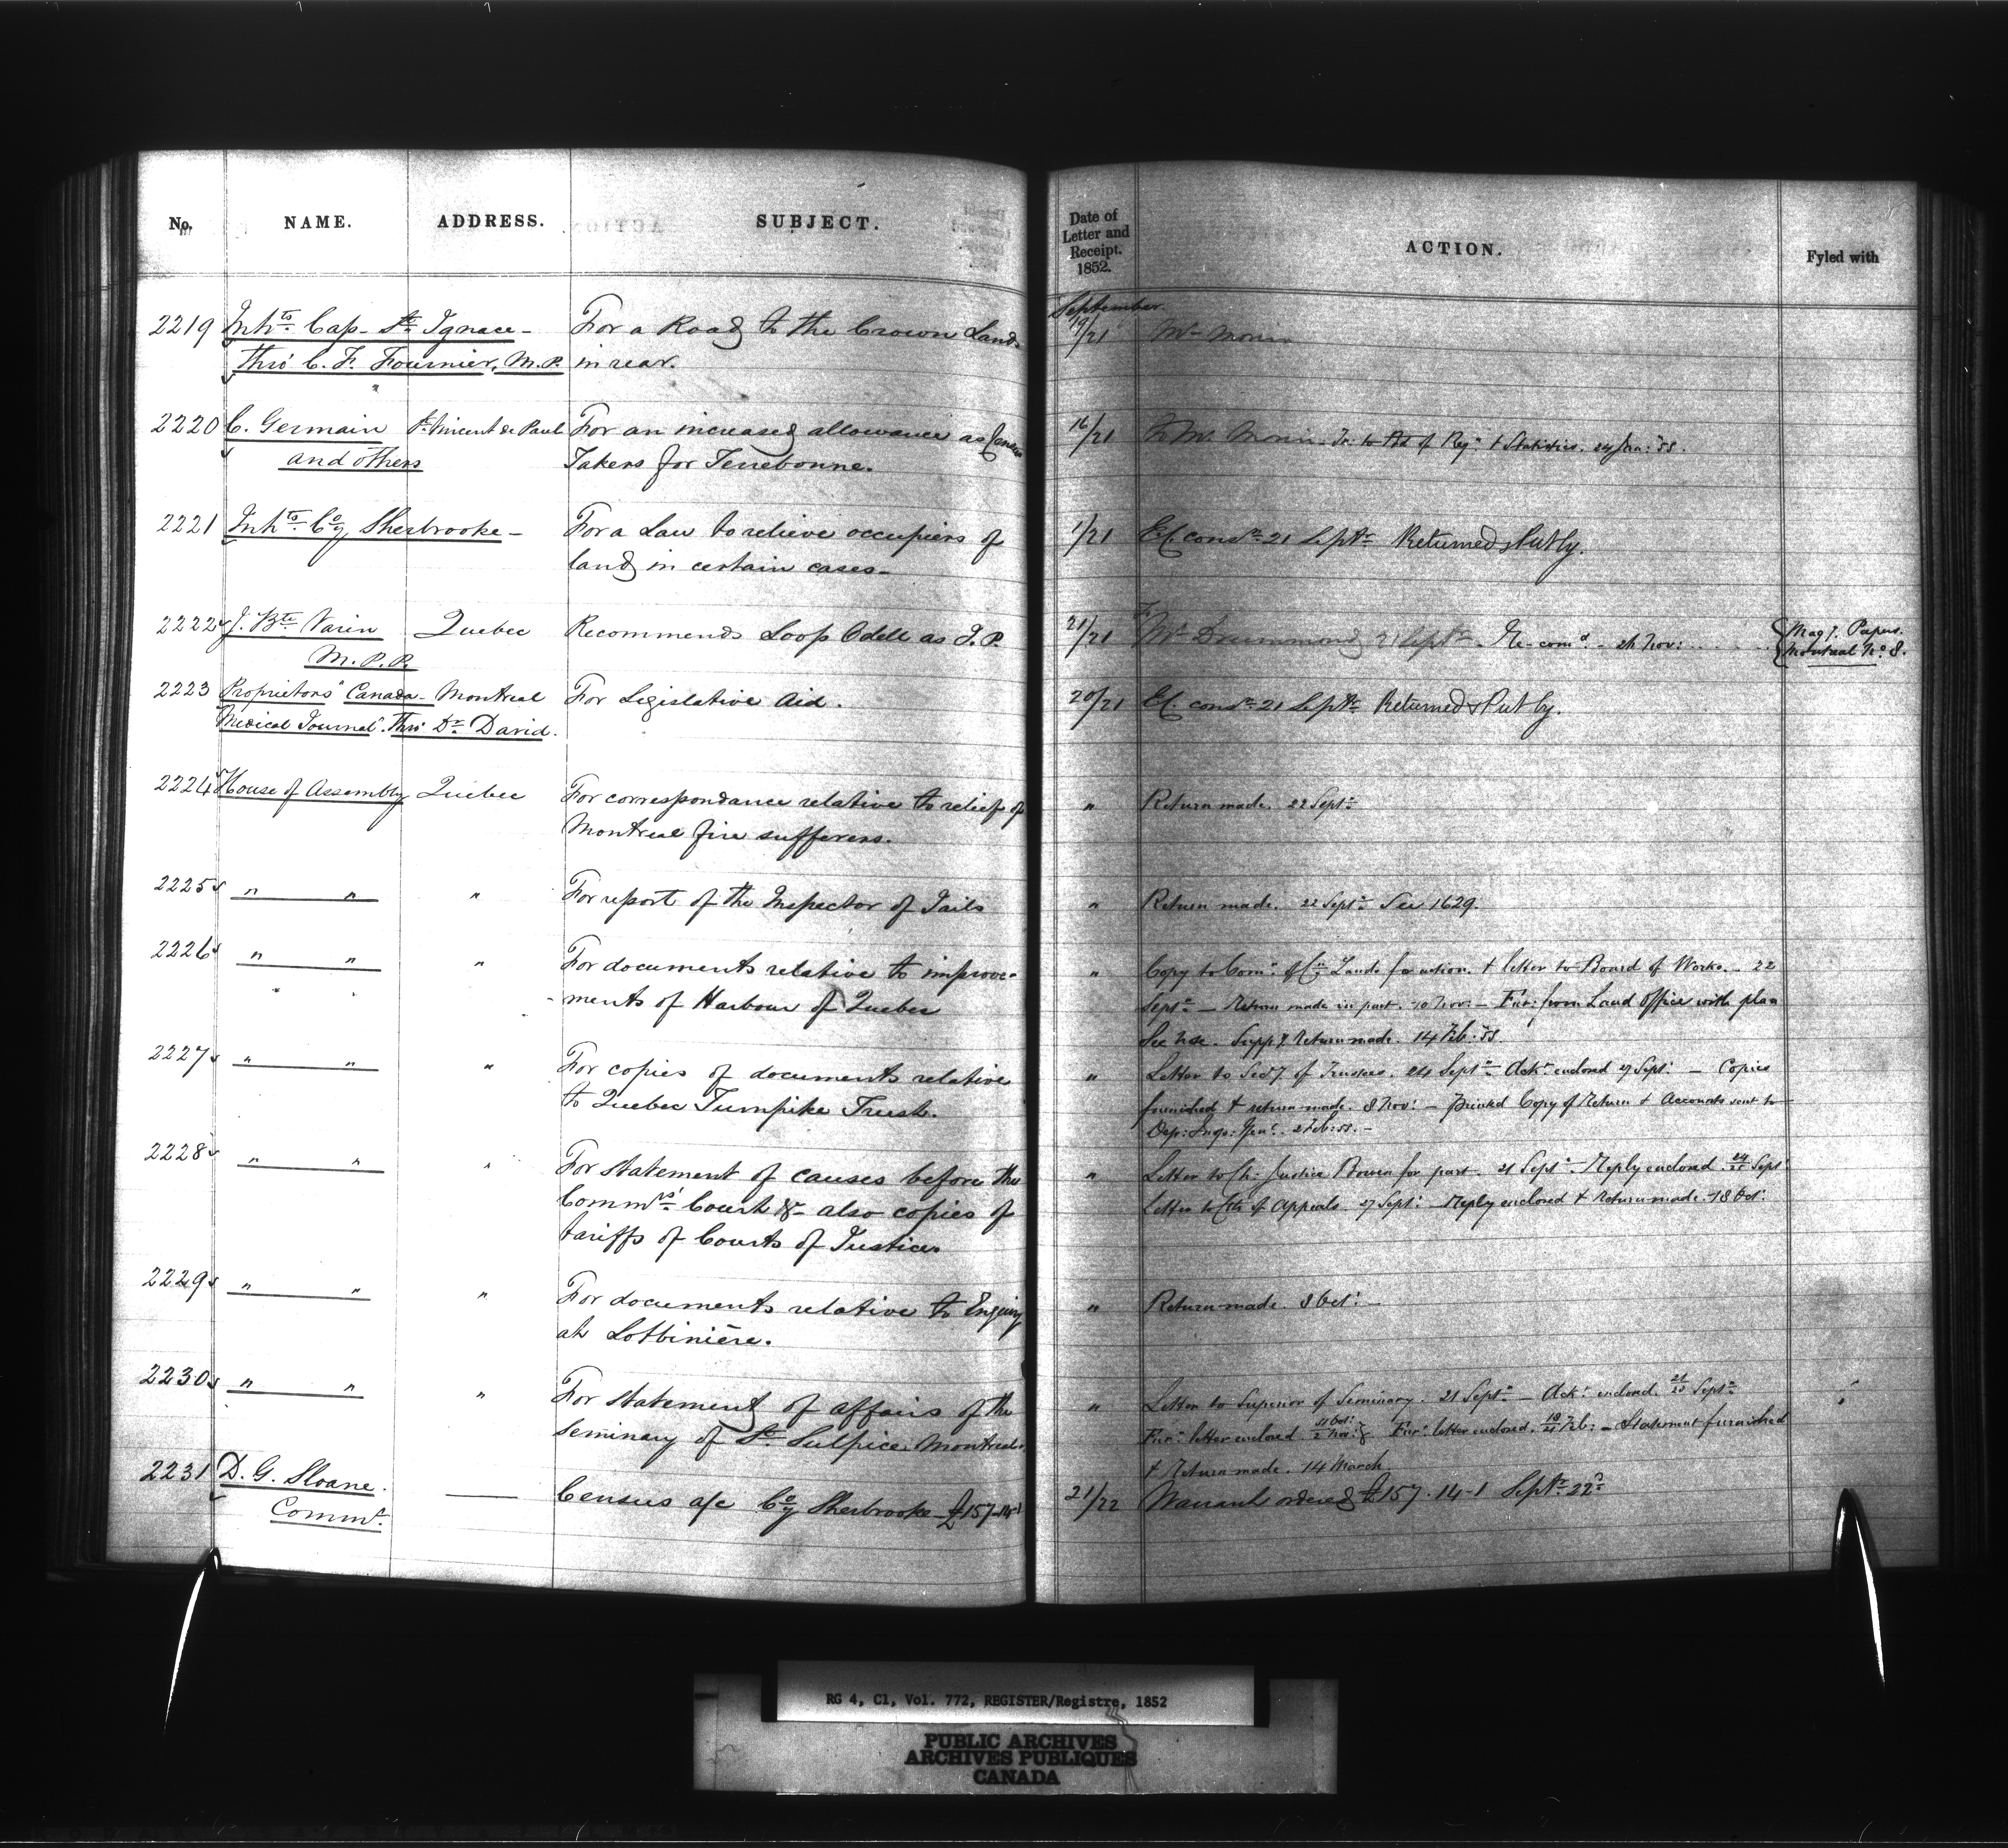 No. NAME. ADDRESS. SUBJECT. Date of Letter and Receipt. 1852. ACTION. Fyled with
September
2219 Inhts. Cap-St. Ignace- For a Road to the Crown Lands 19/21 Mr Morin
thro' C. F. Fournier, M.P. in rear.
2220 C. Germain St. Vincent de Paul For an increased allowance as Census 16/21 Mr. Morin. Tr. to Bd of Reg: & Statistics. 24 Jan: '53.
and others Takers for Terrebonne.
2221 Inhts. Coy Sherbrooke- For a Law to relieve occupiers of 1/21 Ex. consr. 21 Septr. Returned & Put by.
land in certain cases-
2222 J. Bte Varin Quebec Recommends Loop Odell as J.P. 21/21 Mr Drummond 21 Septr. Re-comd. - 24 Nov: Magy. Papers.
M.P.P. Montreal No. 8.
2223 Proprietors "Canada- Montreal For Legislative Aid. 20/21 Ex. consr. 21 Septr. Returned & Put by.
Medical Journal". Thro' Dr. David.
2224 House of Assembly Quebec For correspondance relative to relief of " Return made. 22 Sept:
Montreal fire sufferers.
2225 " " " For report of the Inspector of Jails " Return made. 22 Sept: See 1629.
2226 " " " For documents relative to improve- " Copy to Comr. of Cn. Lands for action. & letter to Board of Works. - 22
-ments of Harbour of Quebec Sept: - Return made in part. 10 Nov: - Fur: from Land Office with plan
Suppy. Return made. 14 Feb: 53.
2227 " " " For copies of documents relative " Letter to Secy. of Trustees. 24 Sept: Ackt. enclosed 27 Sept: - Copies
to Quebec Turnpike Trust. furnished & return made. 8 Nov: - Printed Copy of Return & Accounts sent to
Dep: Insp: Genl. 2 Feb: 53. -
2228 " " " For statement of causes before the " Letter to Ch: Justice Bowen for part. 21 Sept: Reply enclosed. 24/25 Sept:
Commrs' Court &c- also copies of Letter to Clk of Appeals. 27 Sept: - Reply enclosed & Return made. 18 Oct:
tariffs of Courts of Justice.
2229 " " " For documents relative to Enquiry " Return made. 8 Oct: -
at Lotbinière.
2230 " " " For statement of affairs of the " Letter to Superior of Seminary. 21 Sept: - Ackt. enclosed. Sept:
Seminary of St. Sulpice. Montreal. Furr. letter enclosed. Furr. letter enclosed. Feb: - Statement furnished
& Return made. 14 March.
2231 D. G. Sloane. —— Census a/c Coy Sherbrooke- £157-14-1 21/22 Warrant ordered £157.14-1 Septr. 22d.
Commr.
RG 4, C1, Vol. 772, REGISTER/Registre, 1852
PUBLIC ARCHIVES
ARCHIVES PUBLIQUES
CANADA